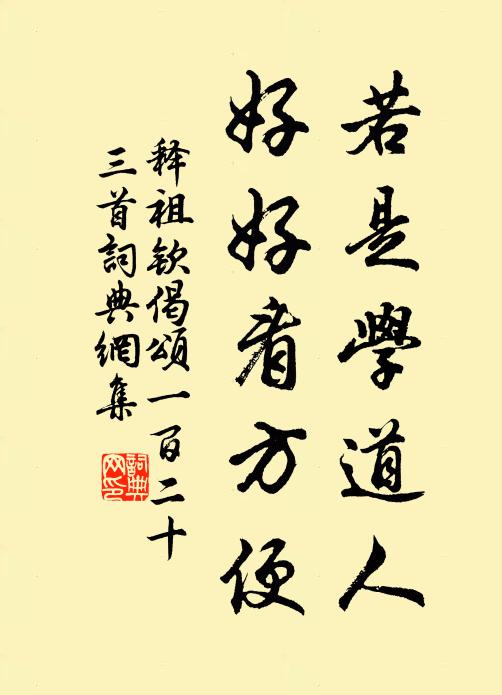 若是學道人
好好看方便
释祖钦偈頌一百二十
三首詞典網集
詞典
网印